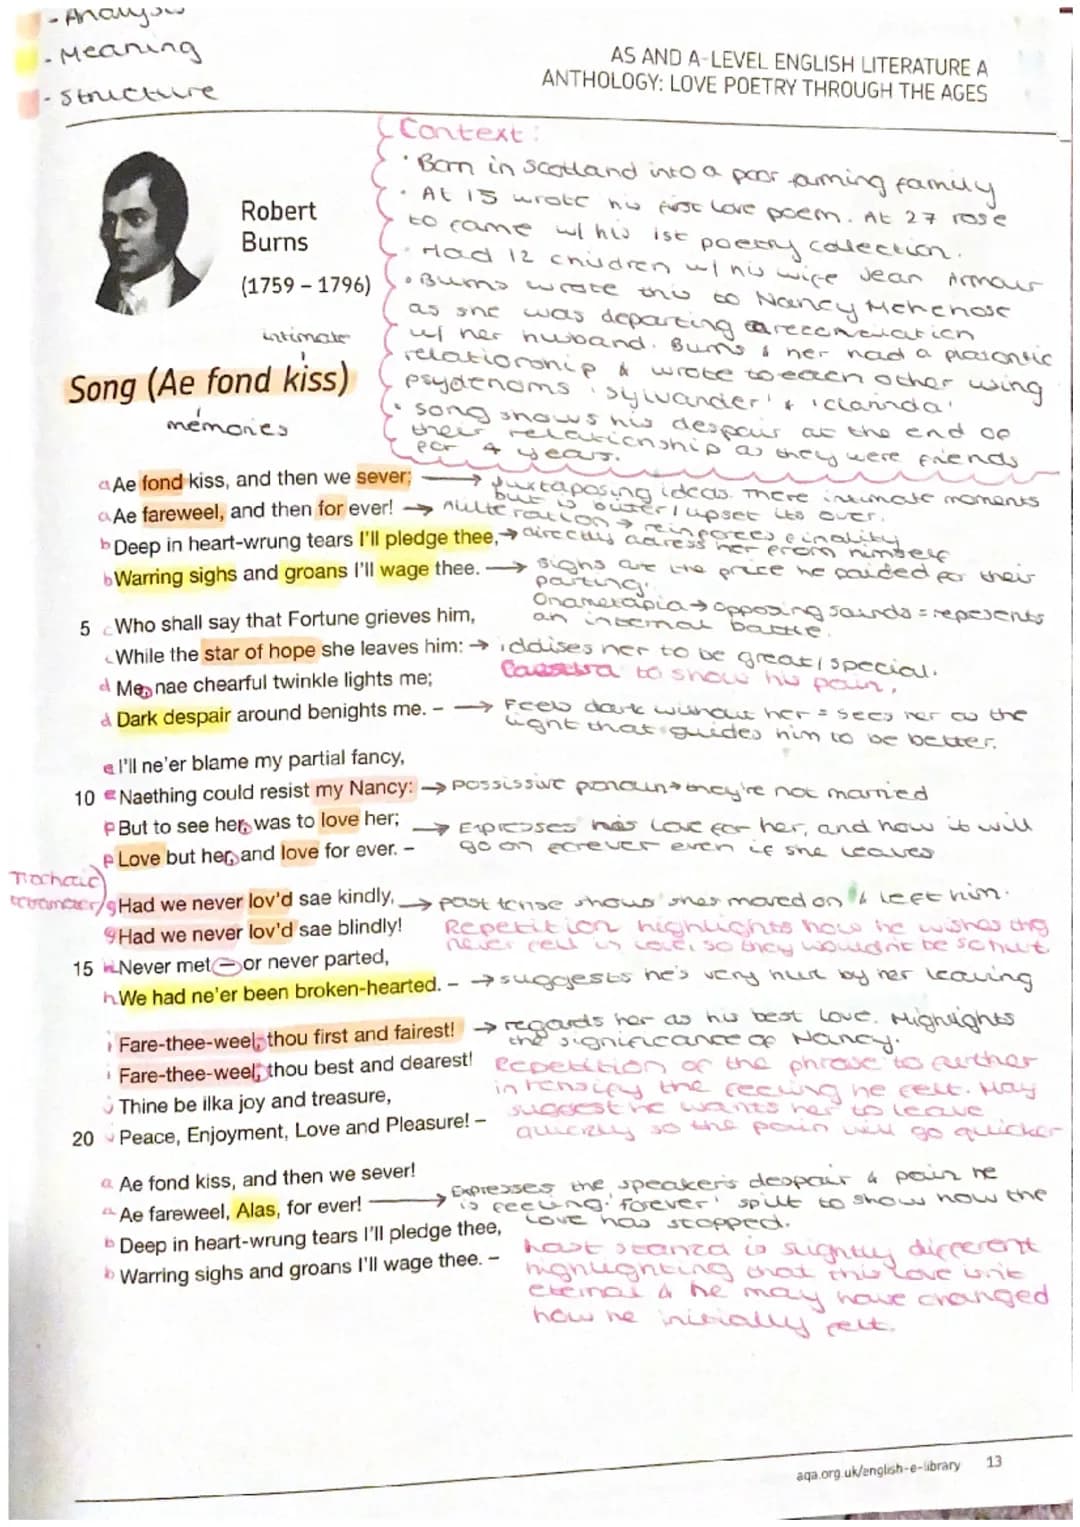 - Analysis
- Meaning
- Structure
AS AND A-LEVEL ENGLISH LITERATURE A
ANTHOLOGY: LOVE POETRY THROUGH THE AGES
Robert
Burns
(1759 – 1796)
Context:
• Born in Scotland into a poor farming family
• At 15 wrote his first love poem. At 27 rose
to fame w/ his 1st poetry collection.
• Had 12 children w/ his wife Jean Armour
• Burns wrote this to Nancy
as she was departing a reconciliation
w/ her husband. Burns & her had a platonic
relationship & wrote to each other using
'sylvander' & 'clarinda'
• song shows his despair at the end of
their relationship as they were friends
for 4 years.
intimate
Song (Ae fond kiss)
memories
a Ae fond kiss, and then we sever; → Juxtaposing ideas. There intimate moments
but is bitter/upset its over.
a Ae fareweel, and then for ever! → Alliteration → reinforces finality
b Deep in heart-wrung tears I'll pledge thee, → directly adress her from himself
b Warring sighs and groans I'll wage thee. → sighs are the price he paided for their
parting.
Onametapia → opposing sounds = represents
an internal battle.
5 c Who shall say that Fortune grieves him,
c While the star of hope she leaves him: → iddises her to be great/special.
d Me, nae chearful twinkle lights me; to show his pain.
d Dark despair around benights me. – → Feels dark without her = sees her as the
light that guides him to be better.
e I'll ne'er blame my partial fancy,
10 e Naething could resist my Nancy: → Possissive pronoun → they're not married
f But to see her, was to love her; → Expresses his love for her, and how it will
go on forever even if she leaves
f Love but her, and love for ever. –
Trochaic
tetrameter
g Had we never lov'd sae kindly, → past tense shows shes moved on & left him.
g Had we never lov'd sae blindly! Repetition highlights how he wishes they
never fell in love, so they wouldn't be so hurt
15 h Never met – or never parted,
h We had ne'er been broken-hearted. – → suggests he's very hurt by her leaving
i Fare-thee-weel, thou first and fairest! → regards her as his best love. Highlights
the significance of Nancy.
i Fare-thee-weel, thou best and dearest! Repetition of the phrase to further
intensify the feeling he felt. May
suggest he wants her to leave
quickly so the pain will go quicker
j Thine be ilka joy and treasure,
20 j Peace, Enjoyment, Love and Pleasure! –
a Ae fond kiss, and then we sever!
a Ae fareweel, Alas, for ever! → Expresses the speakers despair & pain he
is feeling. 'forever' split to show how the
love has stopped.
b Deep in heart-wrung tears I'll pledge thee,
b Warring sighs and groans I'll wage thee. –
Last stanza is slightly different
highlighting that this love isn't
eternal & he may have changed
how he initially felt.
aqa.org.uk/english-e-library 13